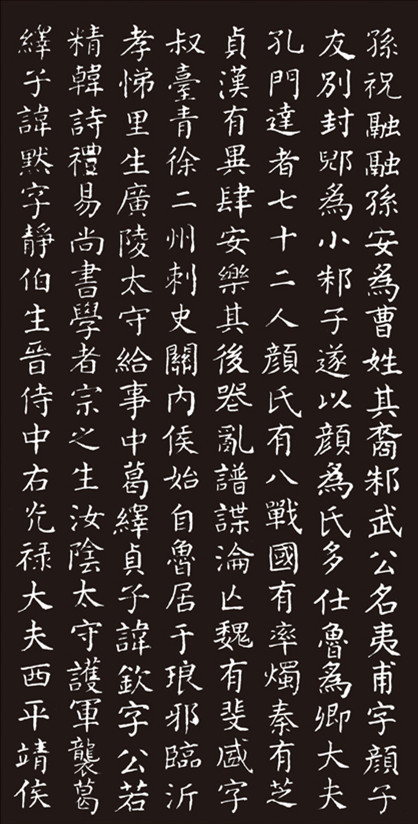 孫祝融融孫安爲曹姓其裔邾武公名夷甫字顔子
友別封郳爲小邾子遂以顔爲氏多仕魯爲卿大夫
孔門達者七十二人顔氏有八戰國有率燭秦有芝
貞漢有異肆安樂其後喪亂譜諜淪亡魏有斐盛字
叔臺青徐二州刺史關内侯始自魯居于琅邪臨沂
孝悌里生廣陵太守給事中葛繹貞子諱欽字公若
精韓詩禮易尚書學者宗之生汝陰太守護軍襲葛
繹子諱默字靜伯生晉侍中右光禄大夫西平靖侯